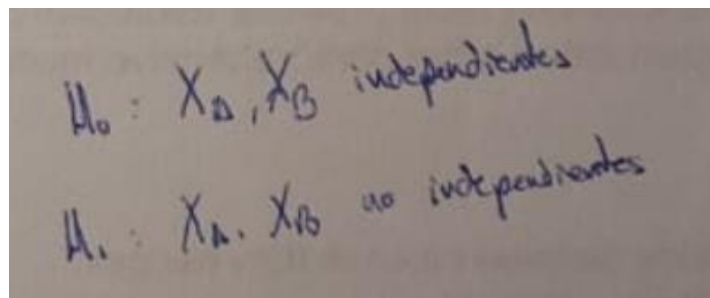 H₀: X_A, X_B independientes
H₁: X_A, X_B no independientes